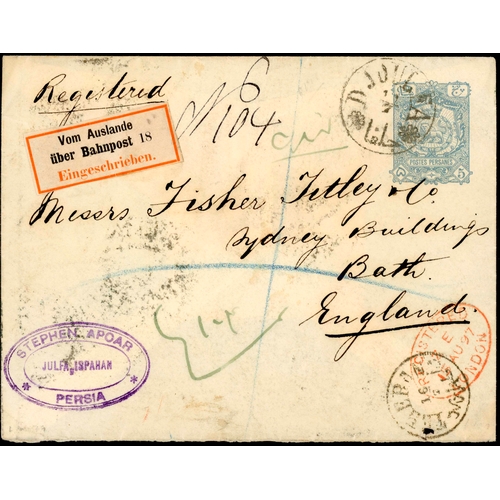 Registered
No 104
Vom Auslande
über Bahnpost 18
Eingeschrieben.
DJOULFA
POSTES PERSANES
5
Messrs Fisher Titley & Co.
Sydney Buildings
Bath.
England.
STEPHEN APCAR
JULFA, ISPAHAN
PERSIA
REGISTERED
LONDON
TEHERAN